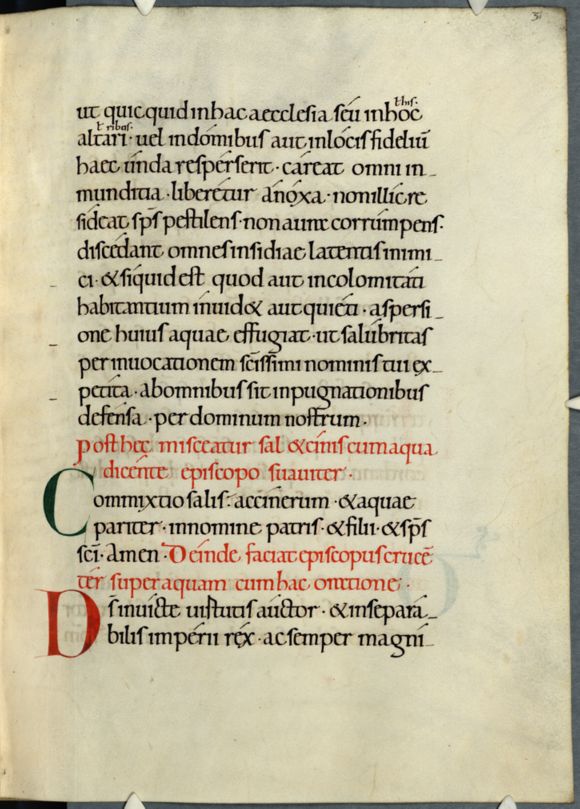 31
ut quicquid in hac aecclesia seu in hoc
ł his·
altari· uel in domibus aut in locis fideliū
ł ribus·
haec unda resperserit · careat omni in-
munditia · liberetur a noxa · non illic re
sideat sps pestilens · non aura corrumpens·
discedant omnes insidiae latentis inimi-
ci · & siquid est quod aut incolomitati
habitantium inuid& aut quieti · aspersi-
one huius aquae effugiat · ut salubritas
per inuocationem scissimi nominis tui ex-
petita · ab omnibus sit inpugnationibus
defensa · per dominum nostrum ·
Post hec misceatur sal & cinis cum aqua
dicente episcopo suauiter ·
Commixtio salis · ac cinerum · & aquae
pariter · in nomine patris · & filii · & sps
sci · Amen · Deinde faciat episcopus crucē
ter super aquam cum hac oratione ·
Ds inuicte uirtutis auctor · & insepara-
bilis imperii rex · ac semper magni-